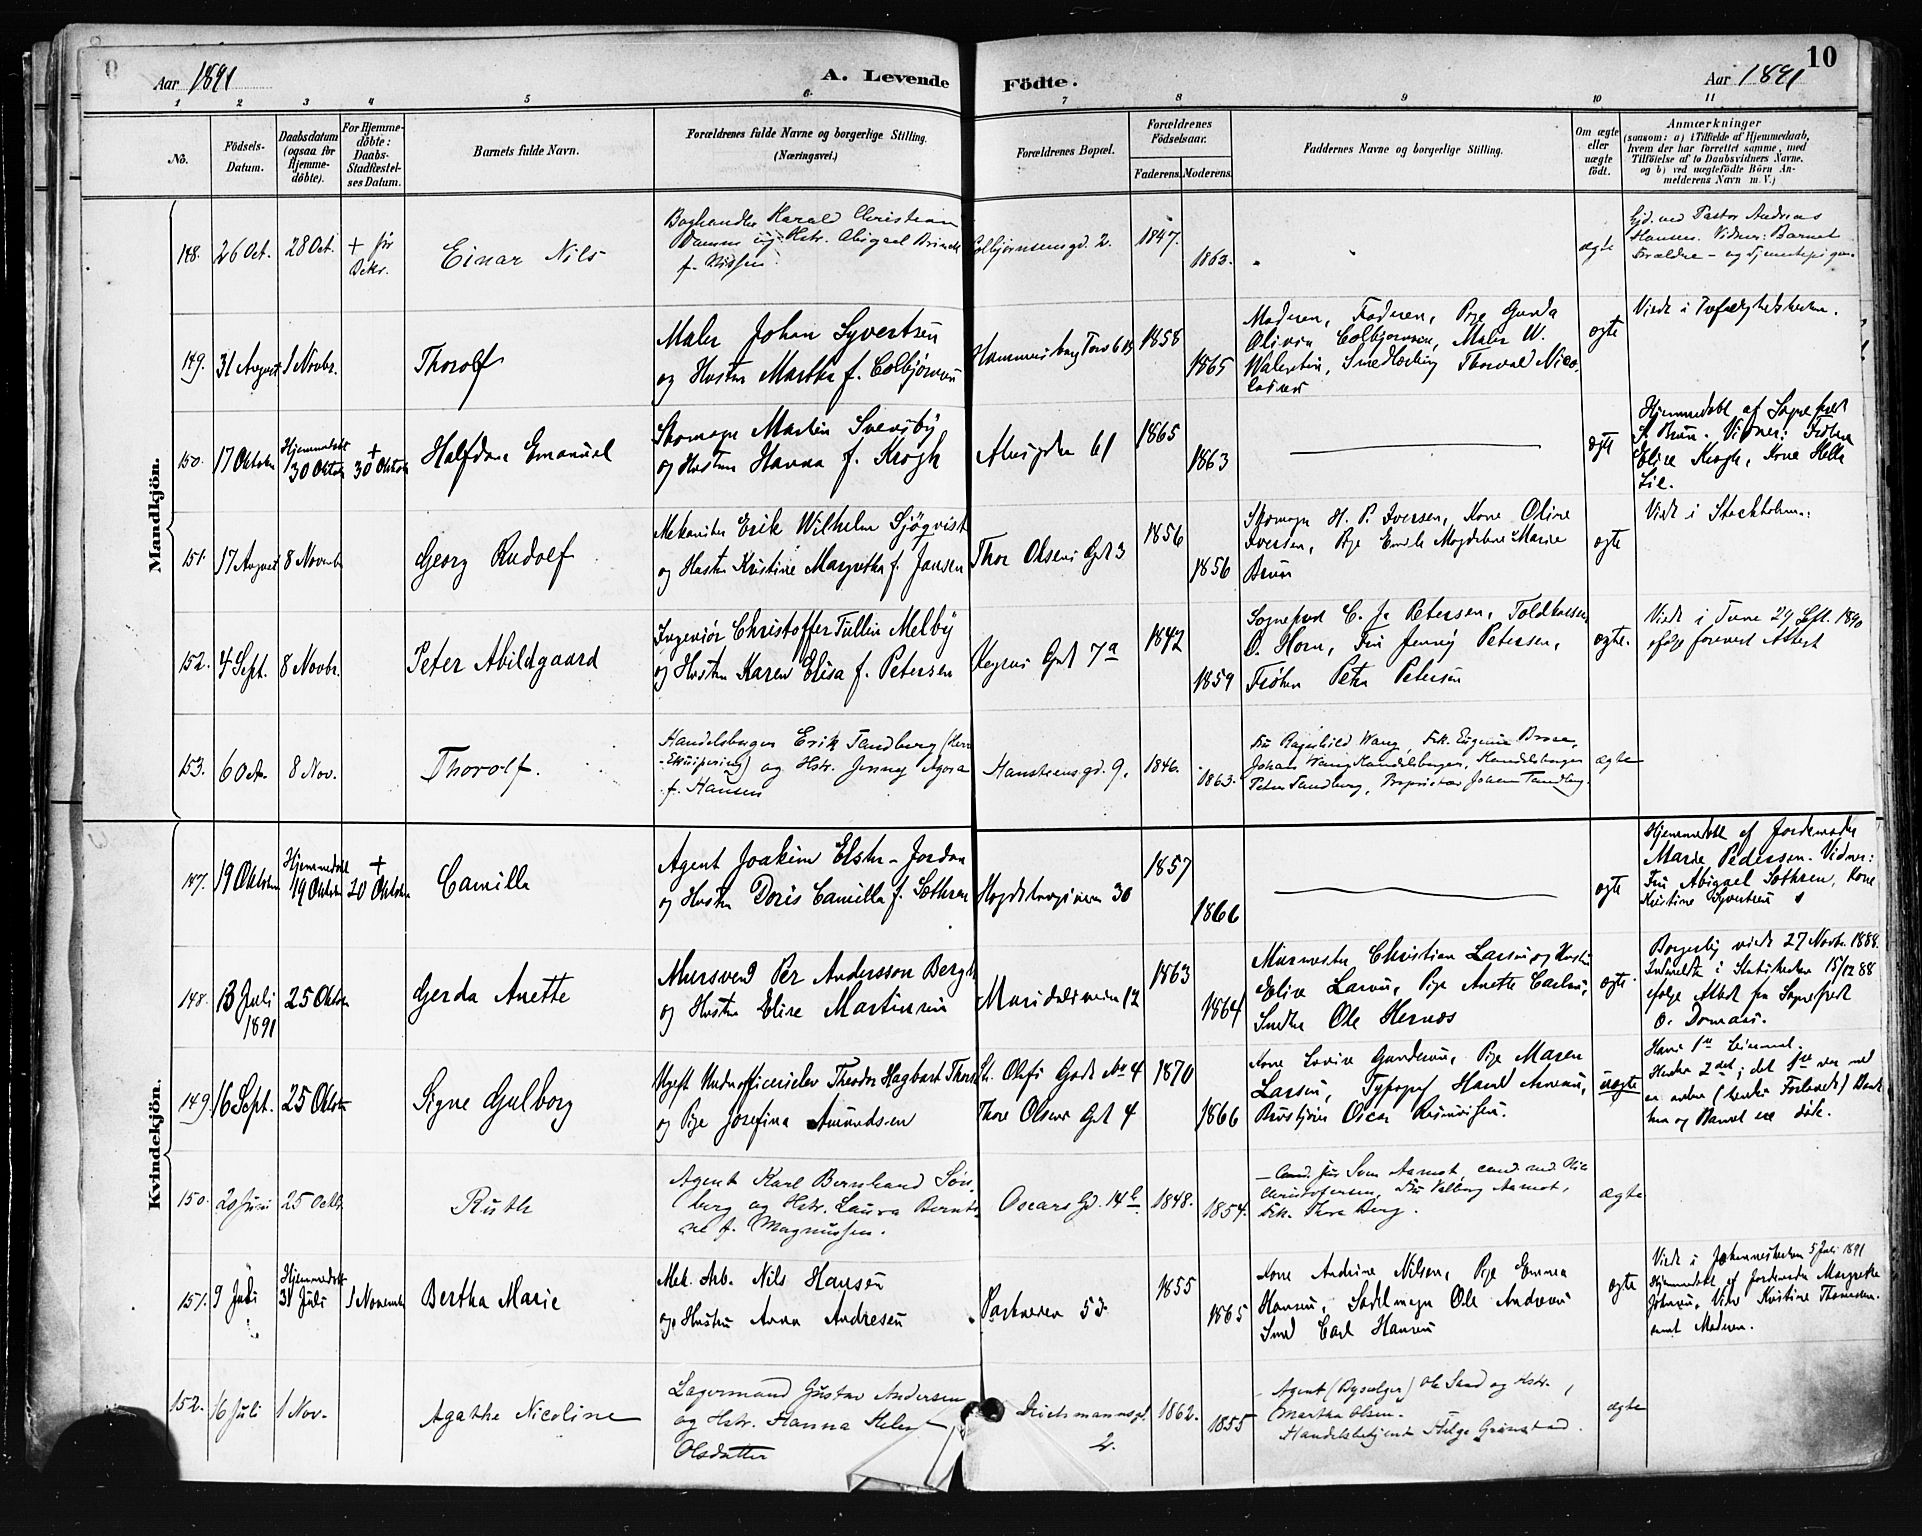 Aar 1891
A. Levende Födte.
Aar 1891
10
1 2 3 4 5 6 7 8 9 10 11
No.
Födsels-Datum.
Daabsdatum (ogsaa for Hjemme-döbte).
For Hjemme-döbte: Daabs-Stadfæstel-ses Datum.
Barnets fulde Navn.
Forældrenes fulde Navne og borgerlige Stilling.
(Næringsvei.)
Forældrenes Bopæl.
Forældrenes Födselsaar.
Faderens. Moderens.
Faddernes Navne og borgerlige Stilling.
Om ægte eller uægte födt.
Anmærkninger
(saasom: a) i Tilfælde af Hjemmedaab,
hvem der har forrettet samme, med
Tilföielse af to Daabsvidners Navne.
og b) ved uægtefödte Börn An-
melderens Navn m. V.)
Mandkjön.
148. 26 Oct. 28 Oct. + før
Einar Nils
Boghandler Harald Christian
Damm og Hstr. Abigael
f. Nissen
Colbjørnsensgd. 2. 1847. 1863.
ægte
Gd. ved Pastor Andreas
Hansen. Vidner: Barnets
Forældre - og Tjenestepigen
149. 31 August 1 Novbr.
Thorolf
Maler Johan Syvertsen
og Hustru Martha f. Colbjørnsen
Hammersborg Torv 6 1858 1865
Moderen, Faderen, Pige Gunda
Olivia Colbjørnsen, Maler W.
Walentin, Smedlærling Thorvald Nico-
laisen
ægte
Viede i Trefoldighedskirken.
150. 17 Oktober Hjemmedøbt 30 Oktob + 30 Oktob
Halfdan Emanuel
Skomager Martin Svensby
og Hustru Hanna f. Krogh
61 1865 1863
ægte
Hjemmedøbt af Sogneprest
Bruun. Vidner: Frøken
Elise Krogh, Kone Helle
Lie.
151. 17 August 8 Novemb
Georg Rudolf
Mekaniker Erik Wilhelm Sjøqvist
og Hustru Kristine Margretha f. Jansen
Thor Olsens Gd 3 1856 1856
Skomager H. P. Iversen, Kone Oline
Iversen, Pige Emile Magdalene Marie
Bruun
ægte
Viede i Stockholm.
152. 4 Sept. 8 Novbr.
Peter Abildgaard
Ingeniør Christoffer Tullin Melby
og Hustru Karen Elisa f. Petersen
Keysers Gd 7a 1847 1859
Sogneprest C. J. Petersen, Toldkasser
O. Horn, Fru Jenny Petersen,
Frøken Petra Petersen
ægte.
Viede i Tune 29 Sept. 1890
ifølge forevist Attest
153. 6 Oct. 8 Nov.
Thorolf.
Handelsborger Erik Tandberg (Herre-
-Ekvipering) og Hstr. Jenny
f. Hansen
Hansteensgd. 9. 1846. 1863.
Fru Ragnhild Wang, Frk. Eugenie
Johan Wang Handelsborger, Handelsborger
Peter Tandberg, Proprietær Johan Tandberg.
ægte
Kvindekjön.
147. 19 Oktober Hjemmedøbt 19 Oktober + 20 Oktober
Camilla
Agent Joakim Elster - Jordan
og Hustru Doris Camilla f. Sæthren
Maridalsveien 30 1857 1866
ægte
Hjemmedøbt af Jordemoder
Marie Pedersen. Vidner:
Fru Abigael Sæthren, Kone
Kristine Syvertsen
148. 13 Juli 1891 25 Oktober
Gerda Anette
Mursvend Per Andersson Bergh
og Hustru Elise Martinsen
Maridalsveien 12 1863 1864
Murmester Christian Larsen og Hustru
Elise Larsen, Pige Anette Carlsen,
Snedker Ole Hernæs
ægte.
Borgerlig viede 27 Novbr. 1888.
Indmeldte i Statskirken 15/12 88
ifølge Attest fra Sogneprest
O. Domaas.
149. 16 Sept. 25 Oktober
Signe Gulborg
Ugift Underofficerselev Theodor Hagbart Thor
og Pige Josefine Amundsen
St. Olafs Gade No 4
Thor Olsens Gd 4 1870 1866
Kone Lovise Gundersen, Pige Maren
Larsen, Typograf Harald Arnesen,
Oscar Rasmussen.
uægte
Hans 1ste Leiermaal.
Hendes 2det; det 1ste var med
en anden (hendes Forlovede) Denne
og Barnet ere døde.
150. 20 Juni 25 Octbr.
Ruth
Agent Karl Bernhard Søn-
berg og Hstr. Laura Bernti-
ne f. Magnussen.
Oscars Gd. 14b. 1848. 1854.
Cand. jur Sven Aamot, cand. med
Christofersen, Fru Valborg Aamot,
Frk. Thora Berg.
ægte
151. 9 Juli Hjemmedøbt 31 Juli 1 Novemb
Bertha Marie
Mek. Arb. Nils Hansen
og Hustru Anna Andresen
Parkveien 53. 1855 1865
Kone Andrine Nilsen, Pige Emma
Hansen, Sadelmager Ole Andresen
Smed Carl Hansen
ægte
Viede i Johanneskirken 5 Juli 1891
Hjemmedøbt af Jordemoder Margrethe
Johnsen, Vidner Kristine Thomesen
samt Moderen.
152. 16 Juli 1 Nov.
Agathe Nicoline
Lagermand Gustav Andersen
og Hstr. Hanna Helen
Olsdatter
Deichmannsgd. 2. 1862. 1855
Agent (Bysælger) Ole Sand og Hstr.,
Martha Olsen.
Handelsbetjent Helge Grønstad.
ægte